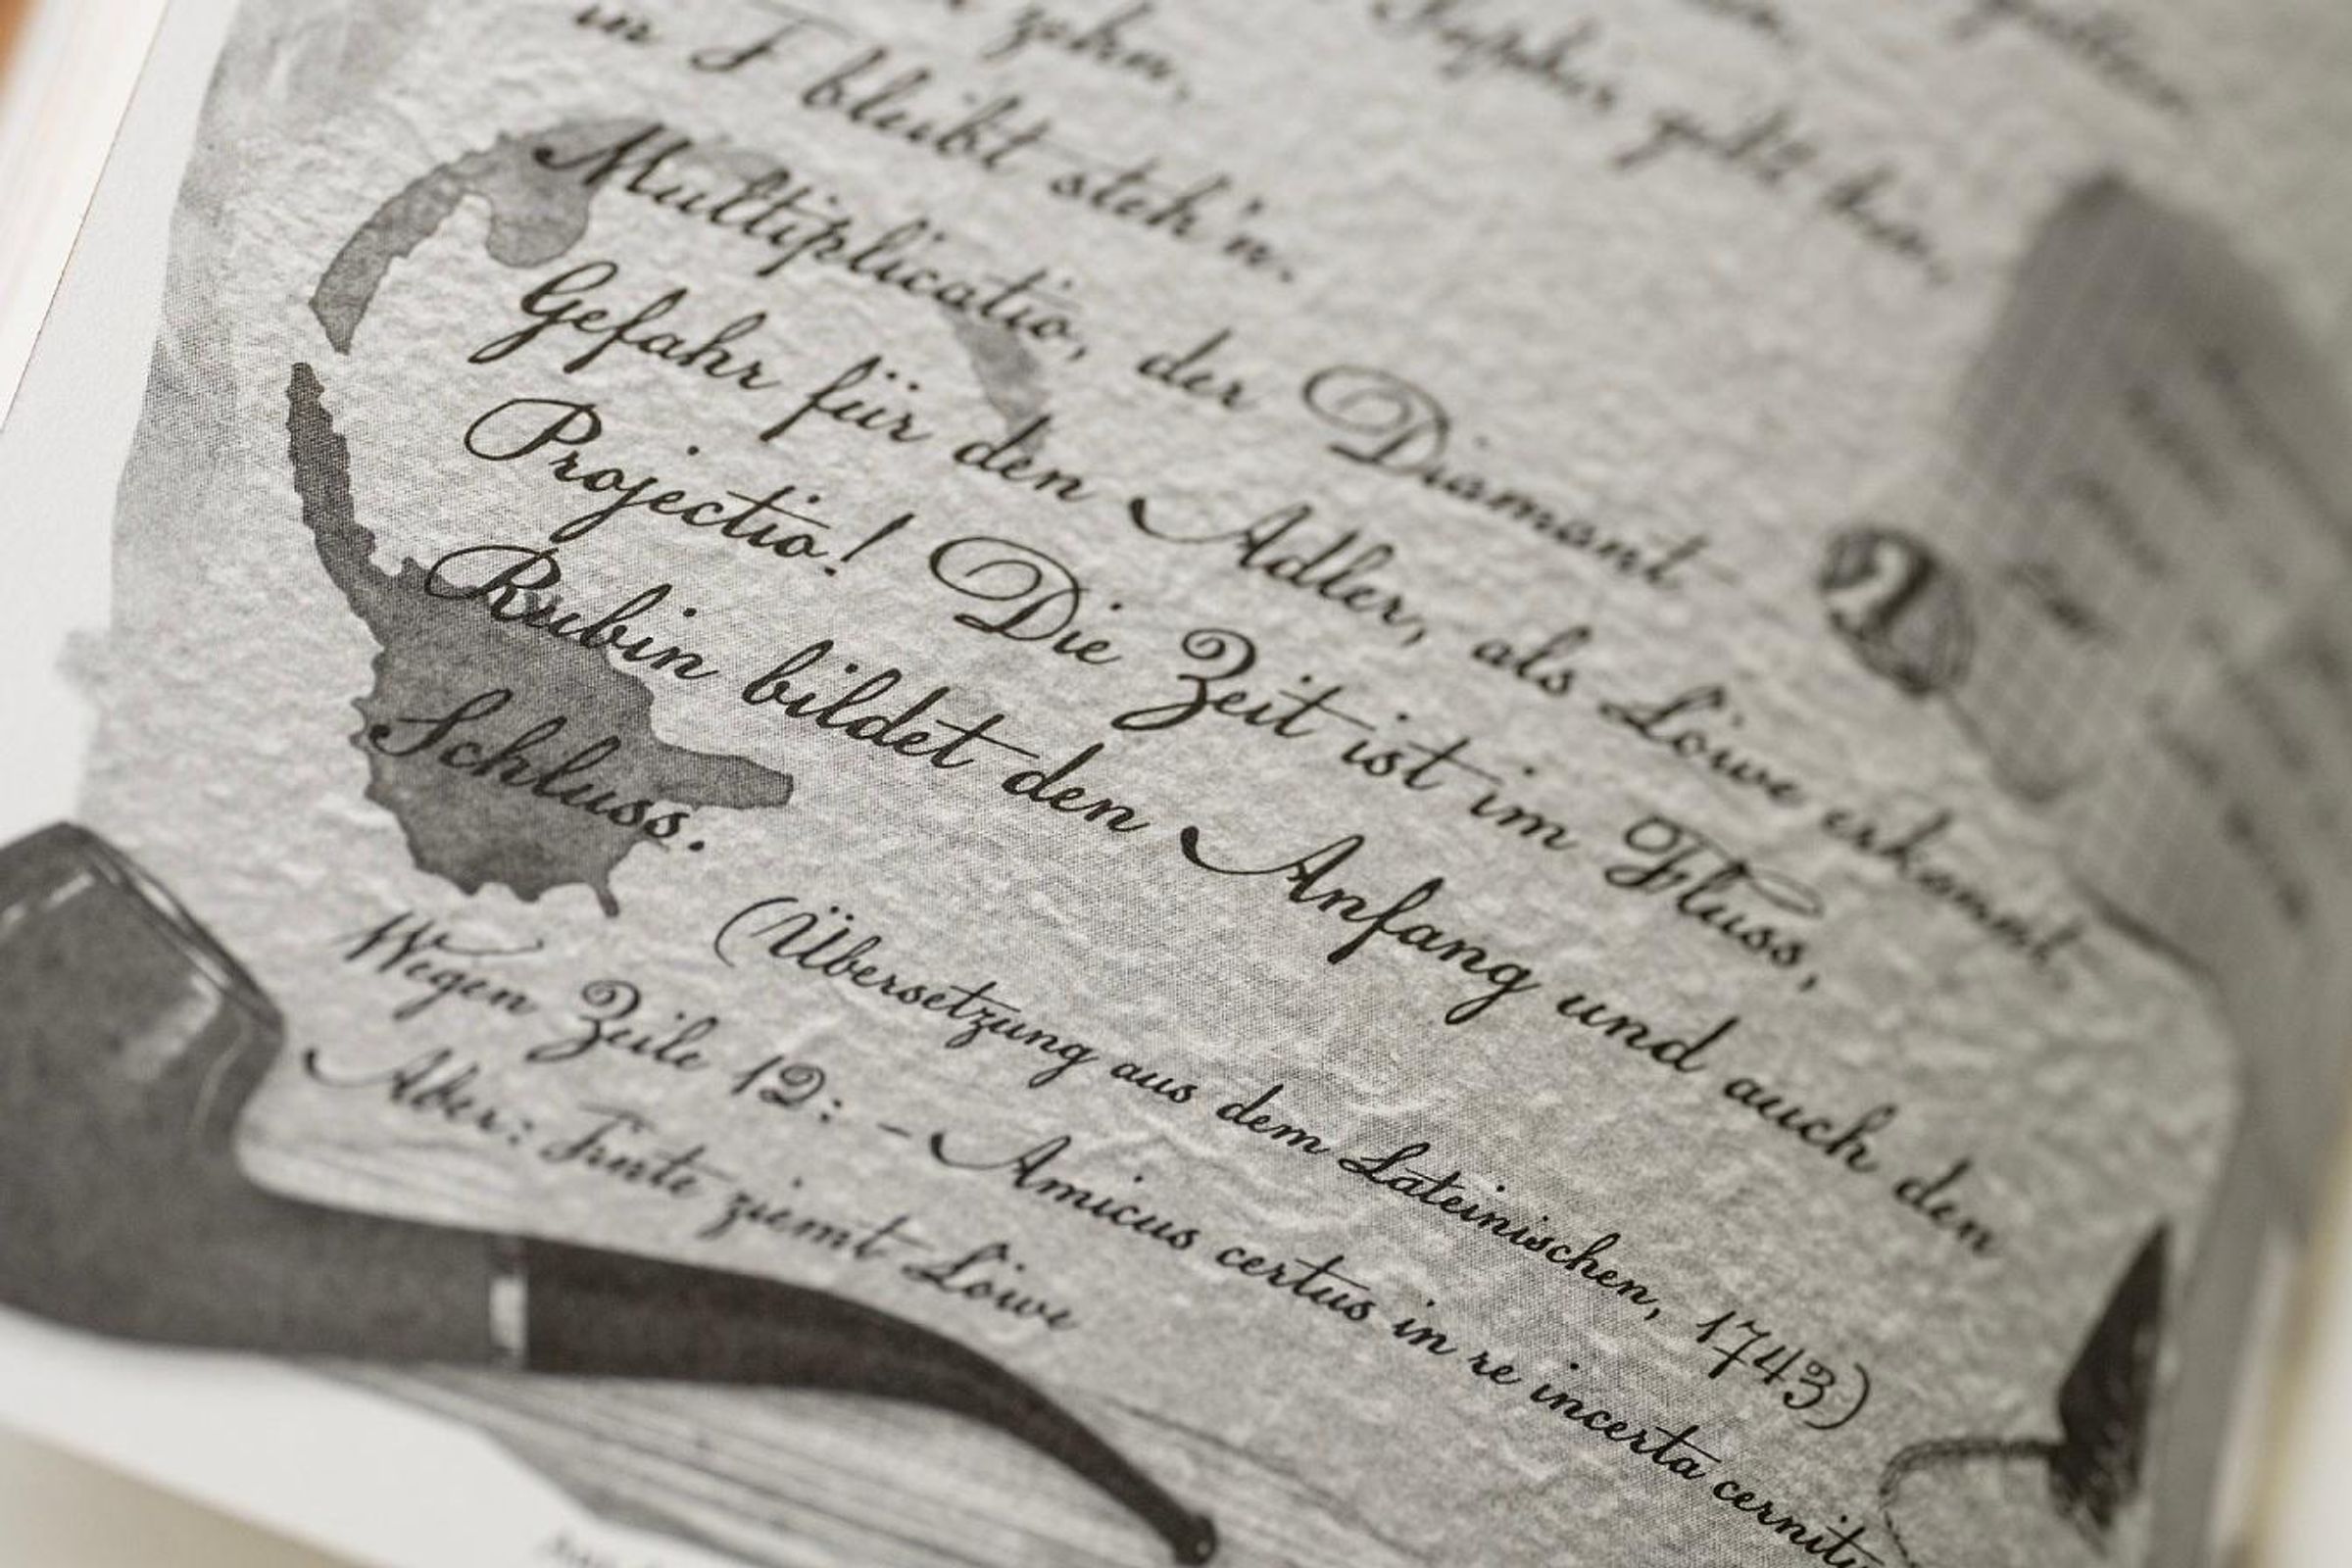 zehn, Saphir geht hin,
in F bleibt steh'n.
Multiplicatio, der Diamant -
Gefahr für den Adler, als Löwe erkannt
Projectio! Die Zeit ist im Fluss,
Rubin bildet den Anfang und auch den
Schluss.
(Übersetzung aus dem Lateinischen, 1743)
Wegen Zeile 12: - Amicus certus in re incerta
Aber: Tinte ziemt Löwe